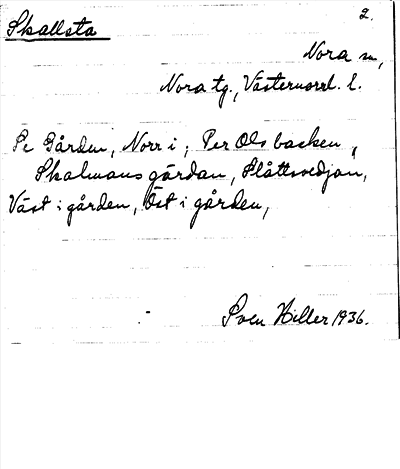 Skallsta
2.
Nora sn,
Nora tg., Västernorrl. l.
Se Gården, Norr i, Per Ols backen,
Skalmans gårdan, Slåttsvedjan,
Väst i gården, Öst i gården,
Sven Hiller 1936.